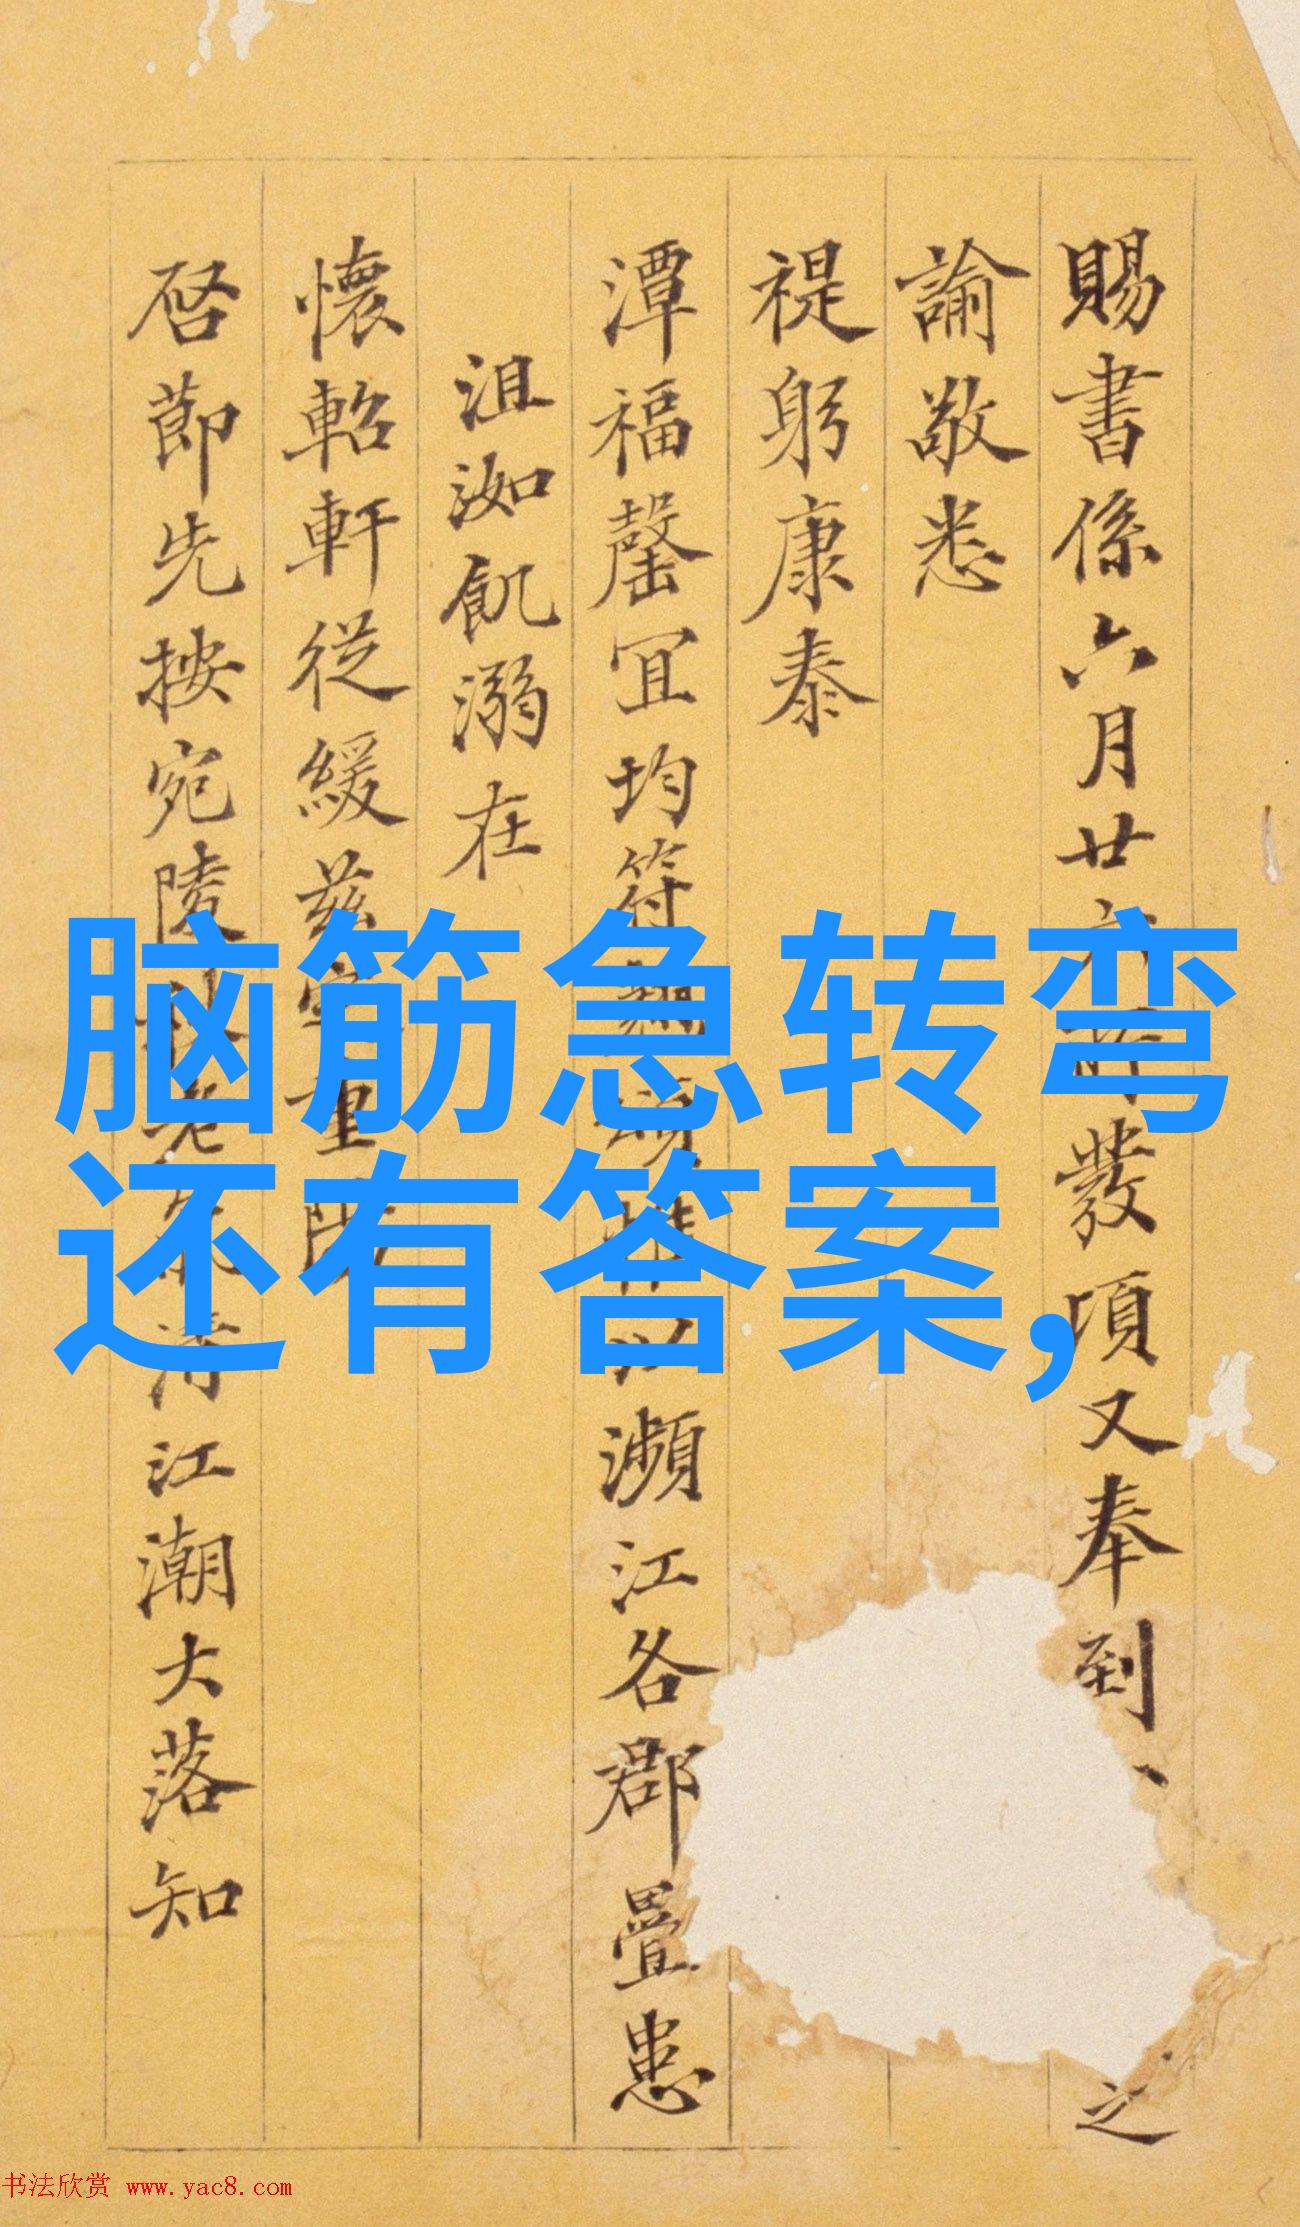 脑筋急转弯
还有答案,
賜書係六月廿發項又奉到、之
諭敬悉
禔躬康泰
潭福罄宜均符瀕江各郡疊患
沮洳飢溺在
懷軺軒從緩茲重
啓節先按宛陵江潮大落知
书法欣赏 www.yac8.com